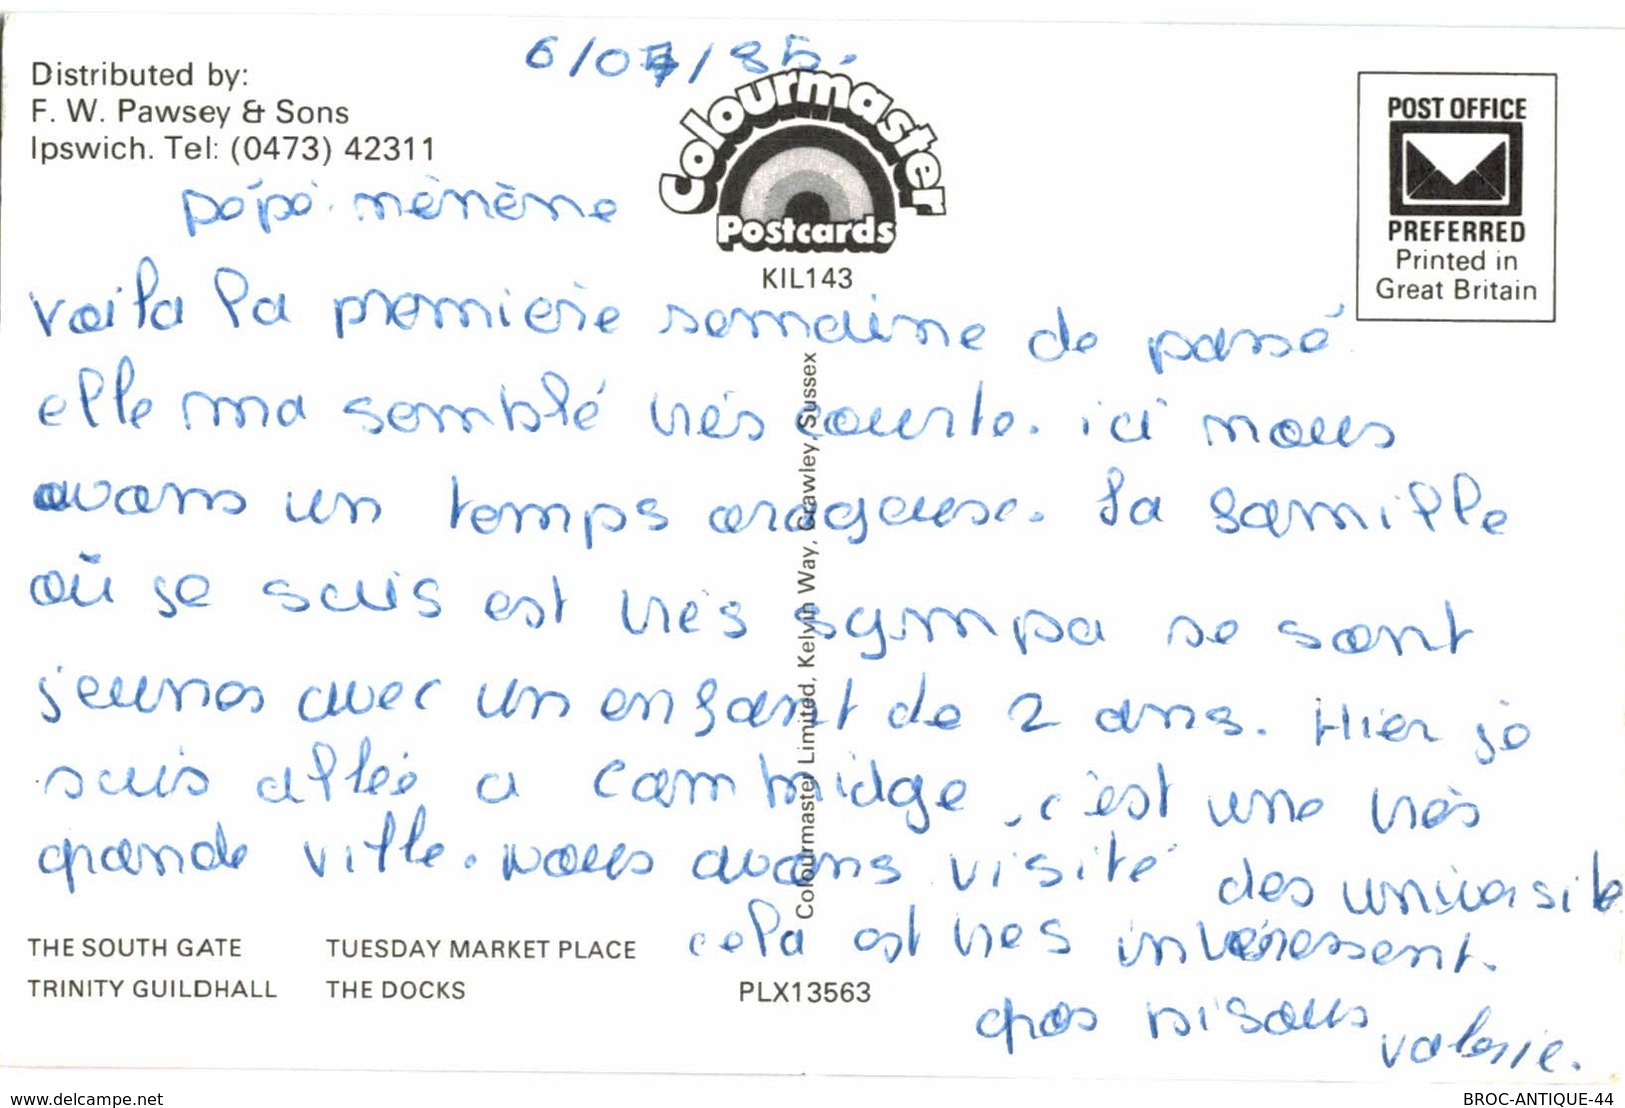 6/07/85.
Distributed by:
F. W. Pawsey & Sons
Ipswich. Tel: (0473) 42311
Colourmaster
Postcards
KIL143
POST OFFICE
PREFERRED
Printed in
Great Britain
pépé. mémème
voila la premiere semaine de passé
elle ma semblé très courte. ici nous
avons un temps orageuse. la famille
où je suis est très sympa se sont
jeunes avec un enfant de 2 ans. Hier je
suis allée a Cambridge, c'est une très
grande ville. nous avons visité des universite
cela est tres intéressent.
gros bisous valerie.
Colourmaster Limited, Kelvin Way, Crawley, Sussex
THE SOUTH GATE TUESDAY MARKET PLACE
TRINITY GUILDHALL THE DOCKS PLX13563
www.delcampe.net BROC-ANTIQUE-44